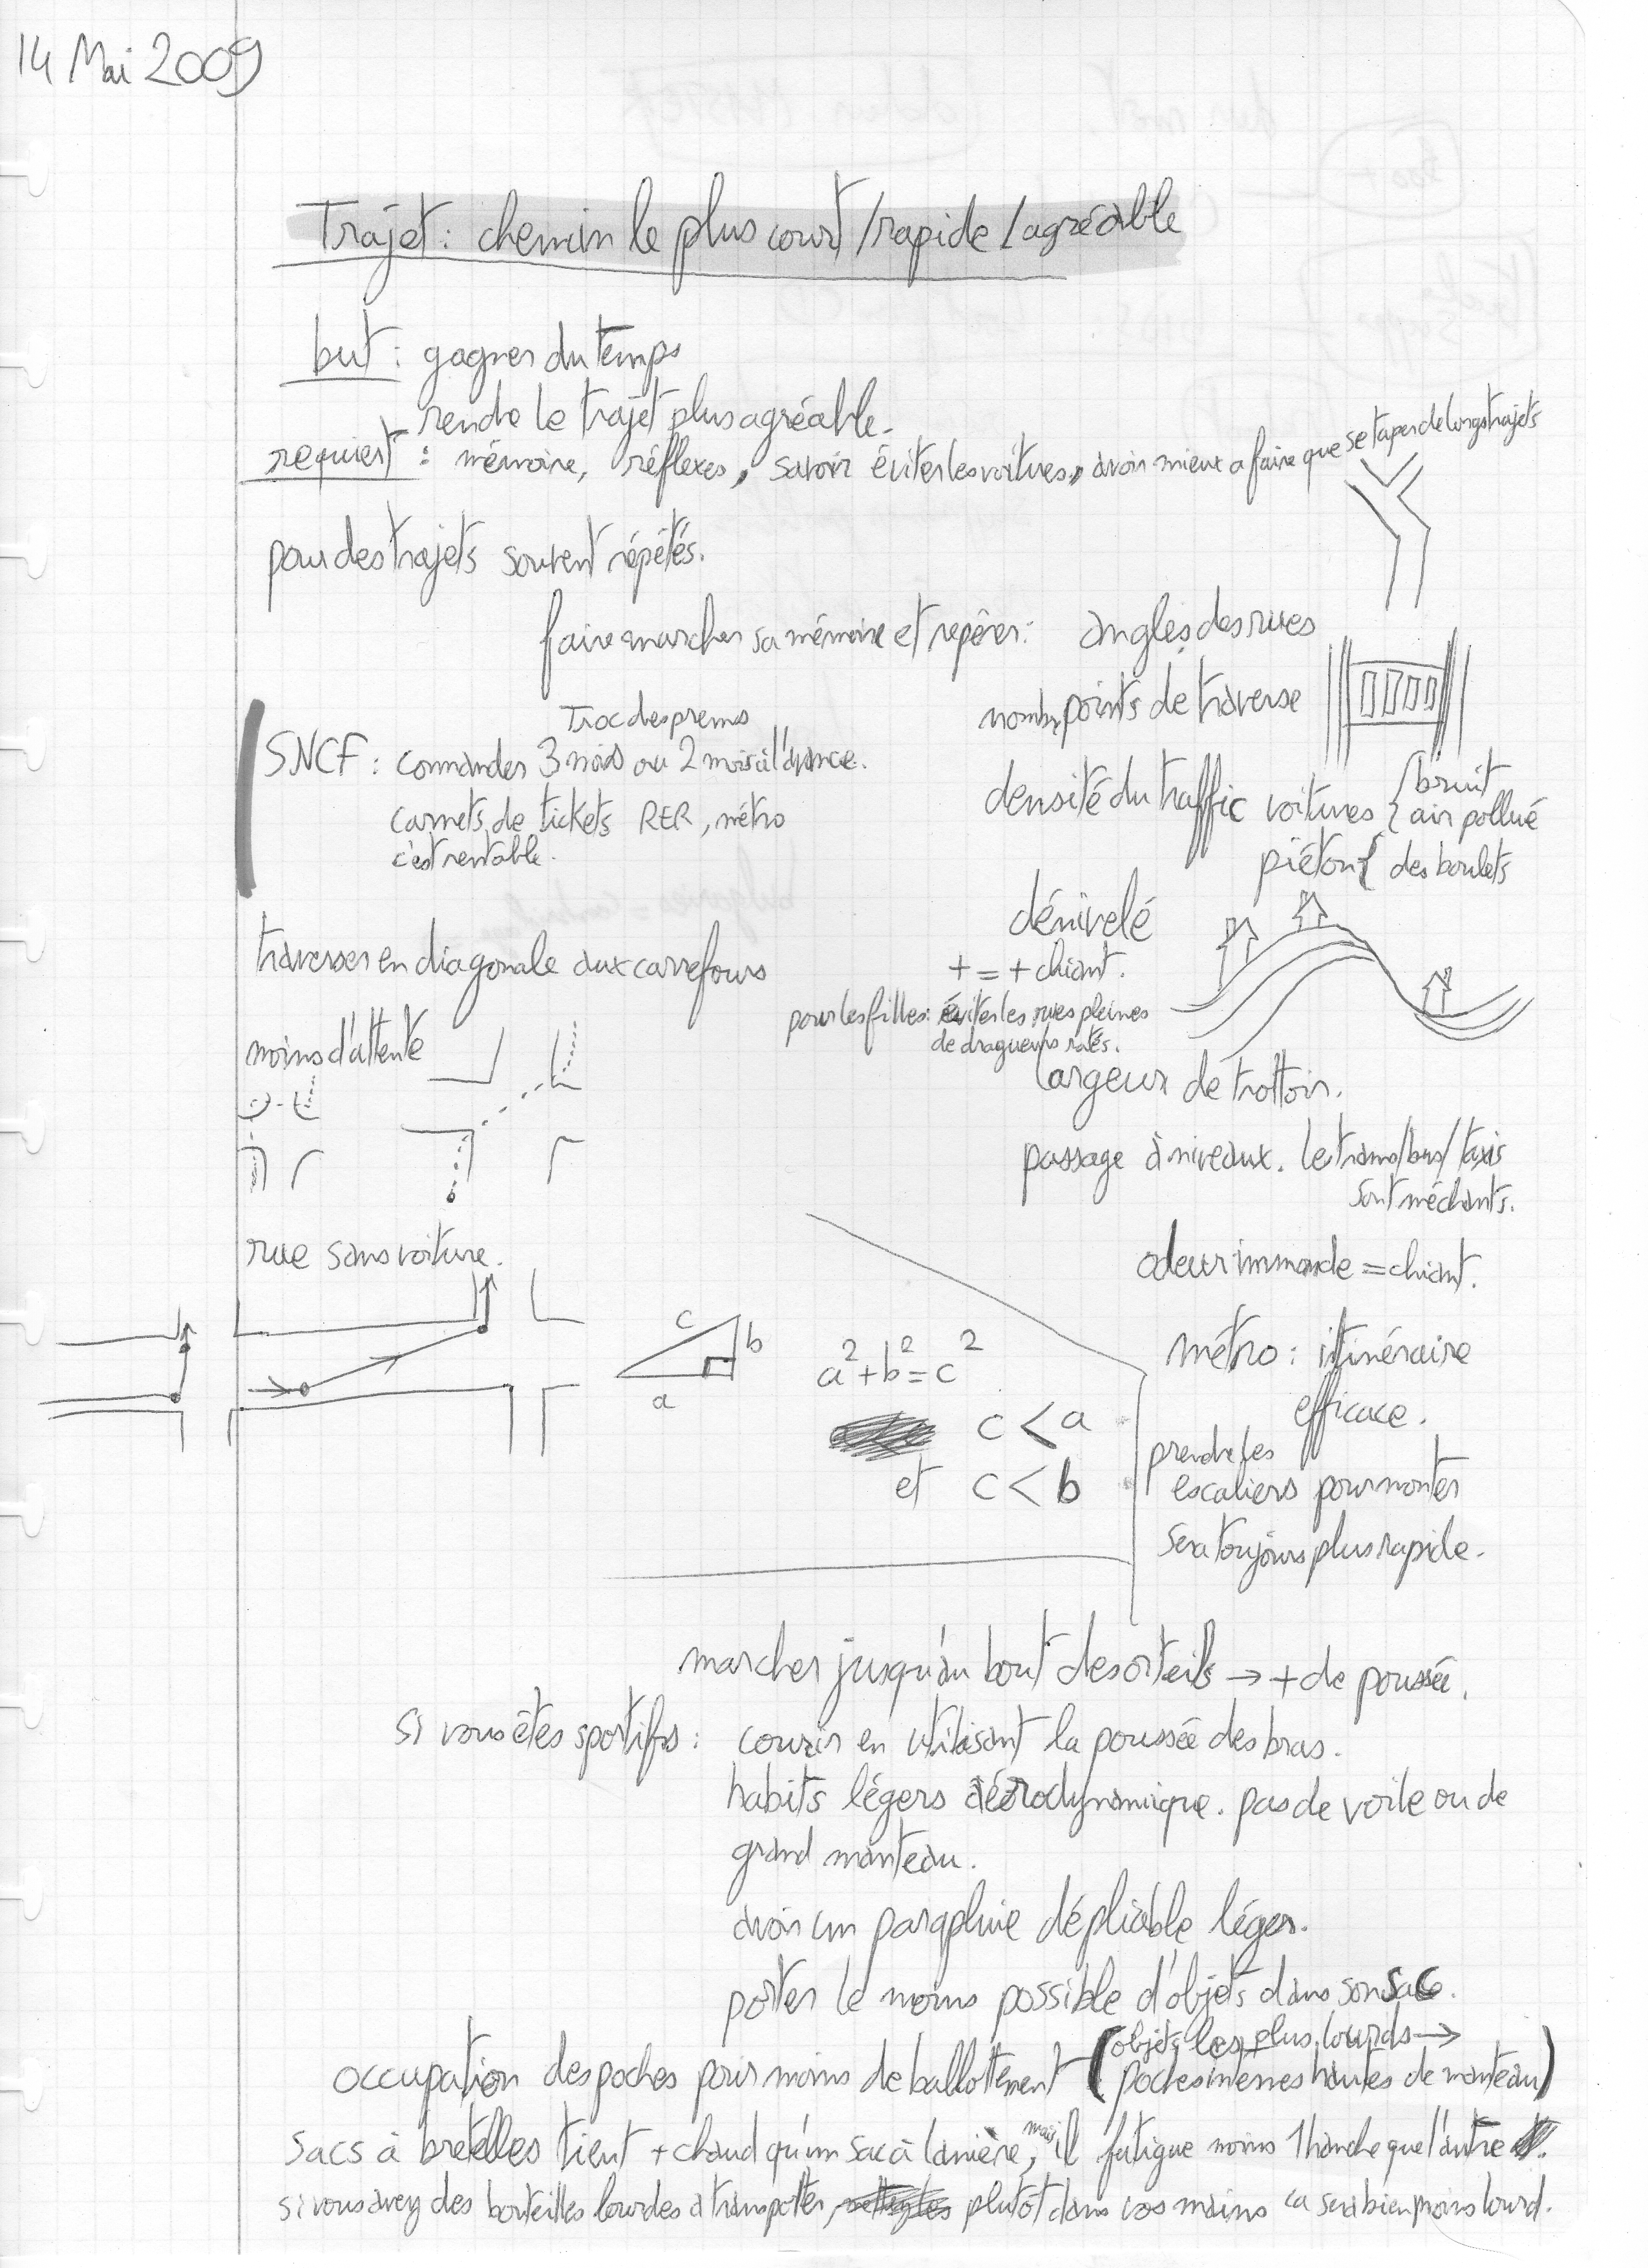 14 Mai 2009
Trajet : chemin le plus court / rapide / agréable
but : gagner du temps
rendre le trajet plus agréable.
requiert : mémoire, réflexes, savoir éviter les voitures, avoir mieux a faire que se taper de longs trajets
pour des trajets souvent répétés.
faire marcher sa mémoire et repérer : angles des rues
nombre points de traverse
densité du traffic voitures { bruit
air pollué
piéton { des boulets
SNCF : commander 3 mois ou 2 mois à l'avance.
Troc des prems
carnets de tickets RER, métro
c'est rentable.
dénivelé
+ = + chiant.
pour les filles : éviter les rues pleines
de dragueurs ratés.
traverser en diagonale aux carrefours
moins d'attente
largeur de trottoir.
passage à niveaux. le trams/bus/taxis
sont méchants.
rue sans voiture.
odeur immonde = chiant.
c
b
a
a² + b² = c²
c < a
et c < b
métro : itinéraire
efficace.
prendre les
escaliers pour monter
sera toujours plus rapide.
marcher jusqu'au bout des orteils → + de poussée.
si vous êtes sportifs : courir en utilisant la poussée des bras.
habits légers aérodynamique. pas de voile ou de
grand manteau.
avoir un parapluie dépliable léger.
porter le moins possible d'objets dans son sac.
occupation des poches pour moins de ballottement (objets les plus lourds →
poches internes hautes de manteau)
sacs à bretelles tient + chaud qu'un sac à lanière, mais il fatigue moins 1 hanche que l'autre.
si vous avez des bouteilles lourdes a transporter, plutôt dans vos mains ca sera bien moins lourd.